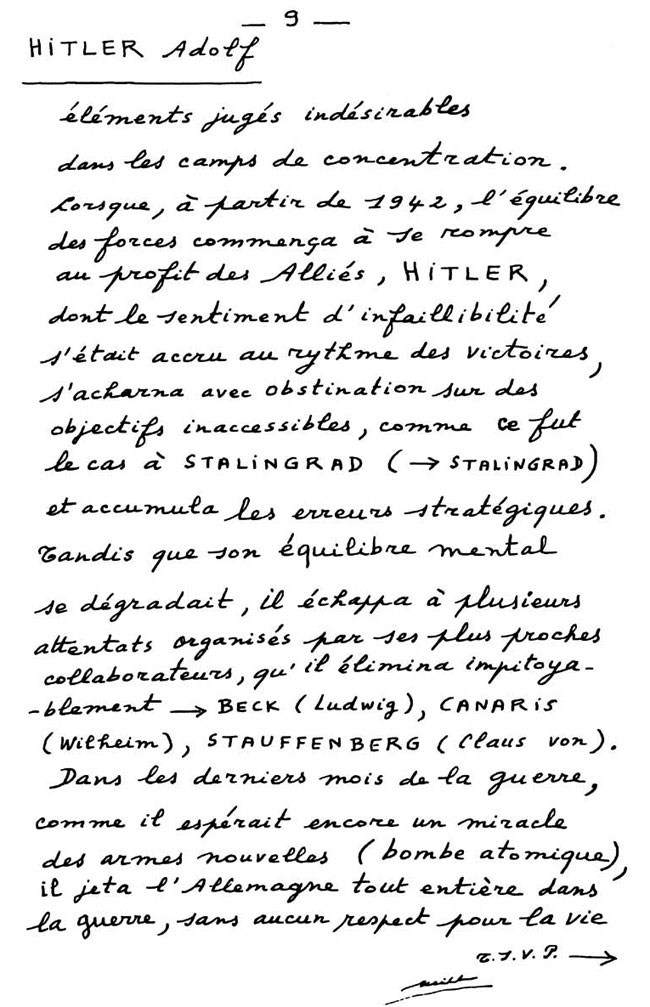 — 9 —
HiTLER Adolf
éléments jugés indésirables
dans les camps de concentration.
Lorsque, à partir de 1942, l'équilibre
des forces commença à se rompre
au profit des Alliés, HiTLER,
dont le sentiment d'infaillibilité
s'était accru au rythme des victoires,
s'acharna avec obstination sur des
objectifs inaccessibles, comme ce fut
le cas à STALiNGRAD (→ STALiNGRAD)
et accumula les erreurs stratégiques.
Tandis que son équilibre mental
se dégradait, il échappa à plusieurs
attentats organisés par ses plus proches
collaborateurs, qu'il élimina impitoya-
-blement → BECK (Ludwig), CANARiS
(Wilheim), STAUFFENBERG (Claus von).
Dans les derniers mois de la guerre,
comme il espérait encore un miracle
des armes nouvelles (bombe atomique),
il jeta l'Allemagne tout entière dans
la guerre, sans aucun respect pour la vie
T.S.V.P. →